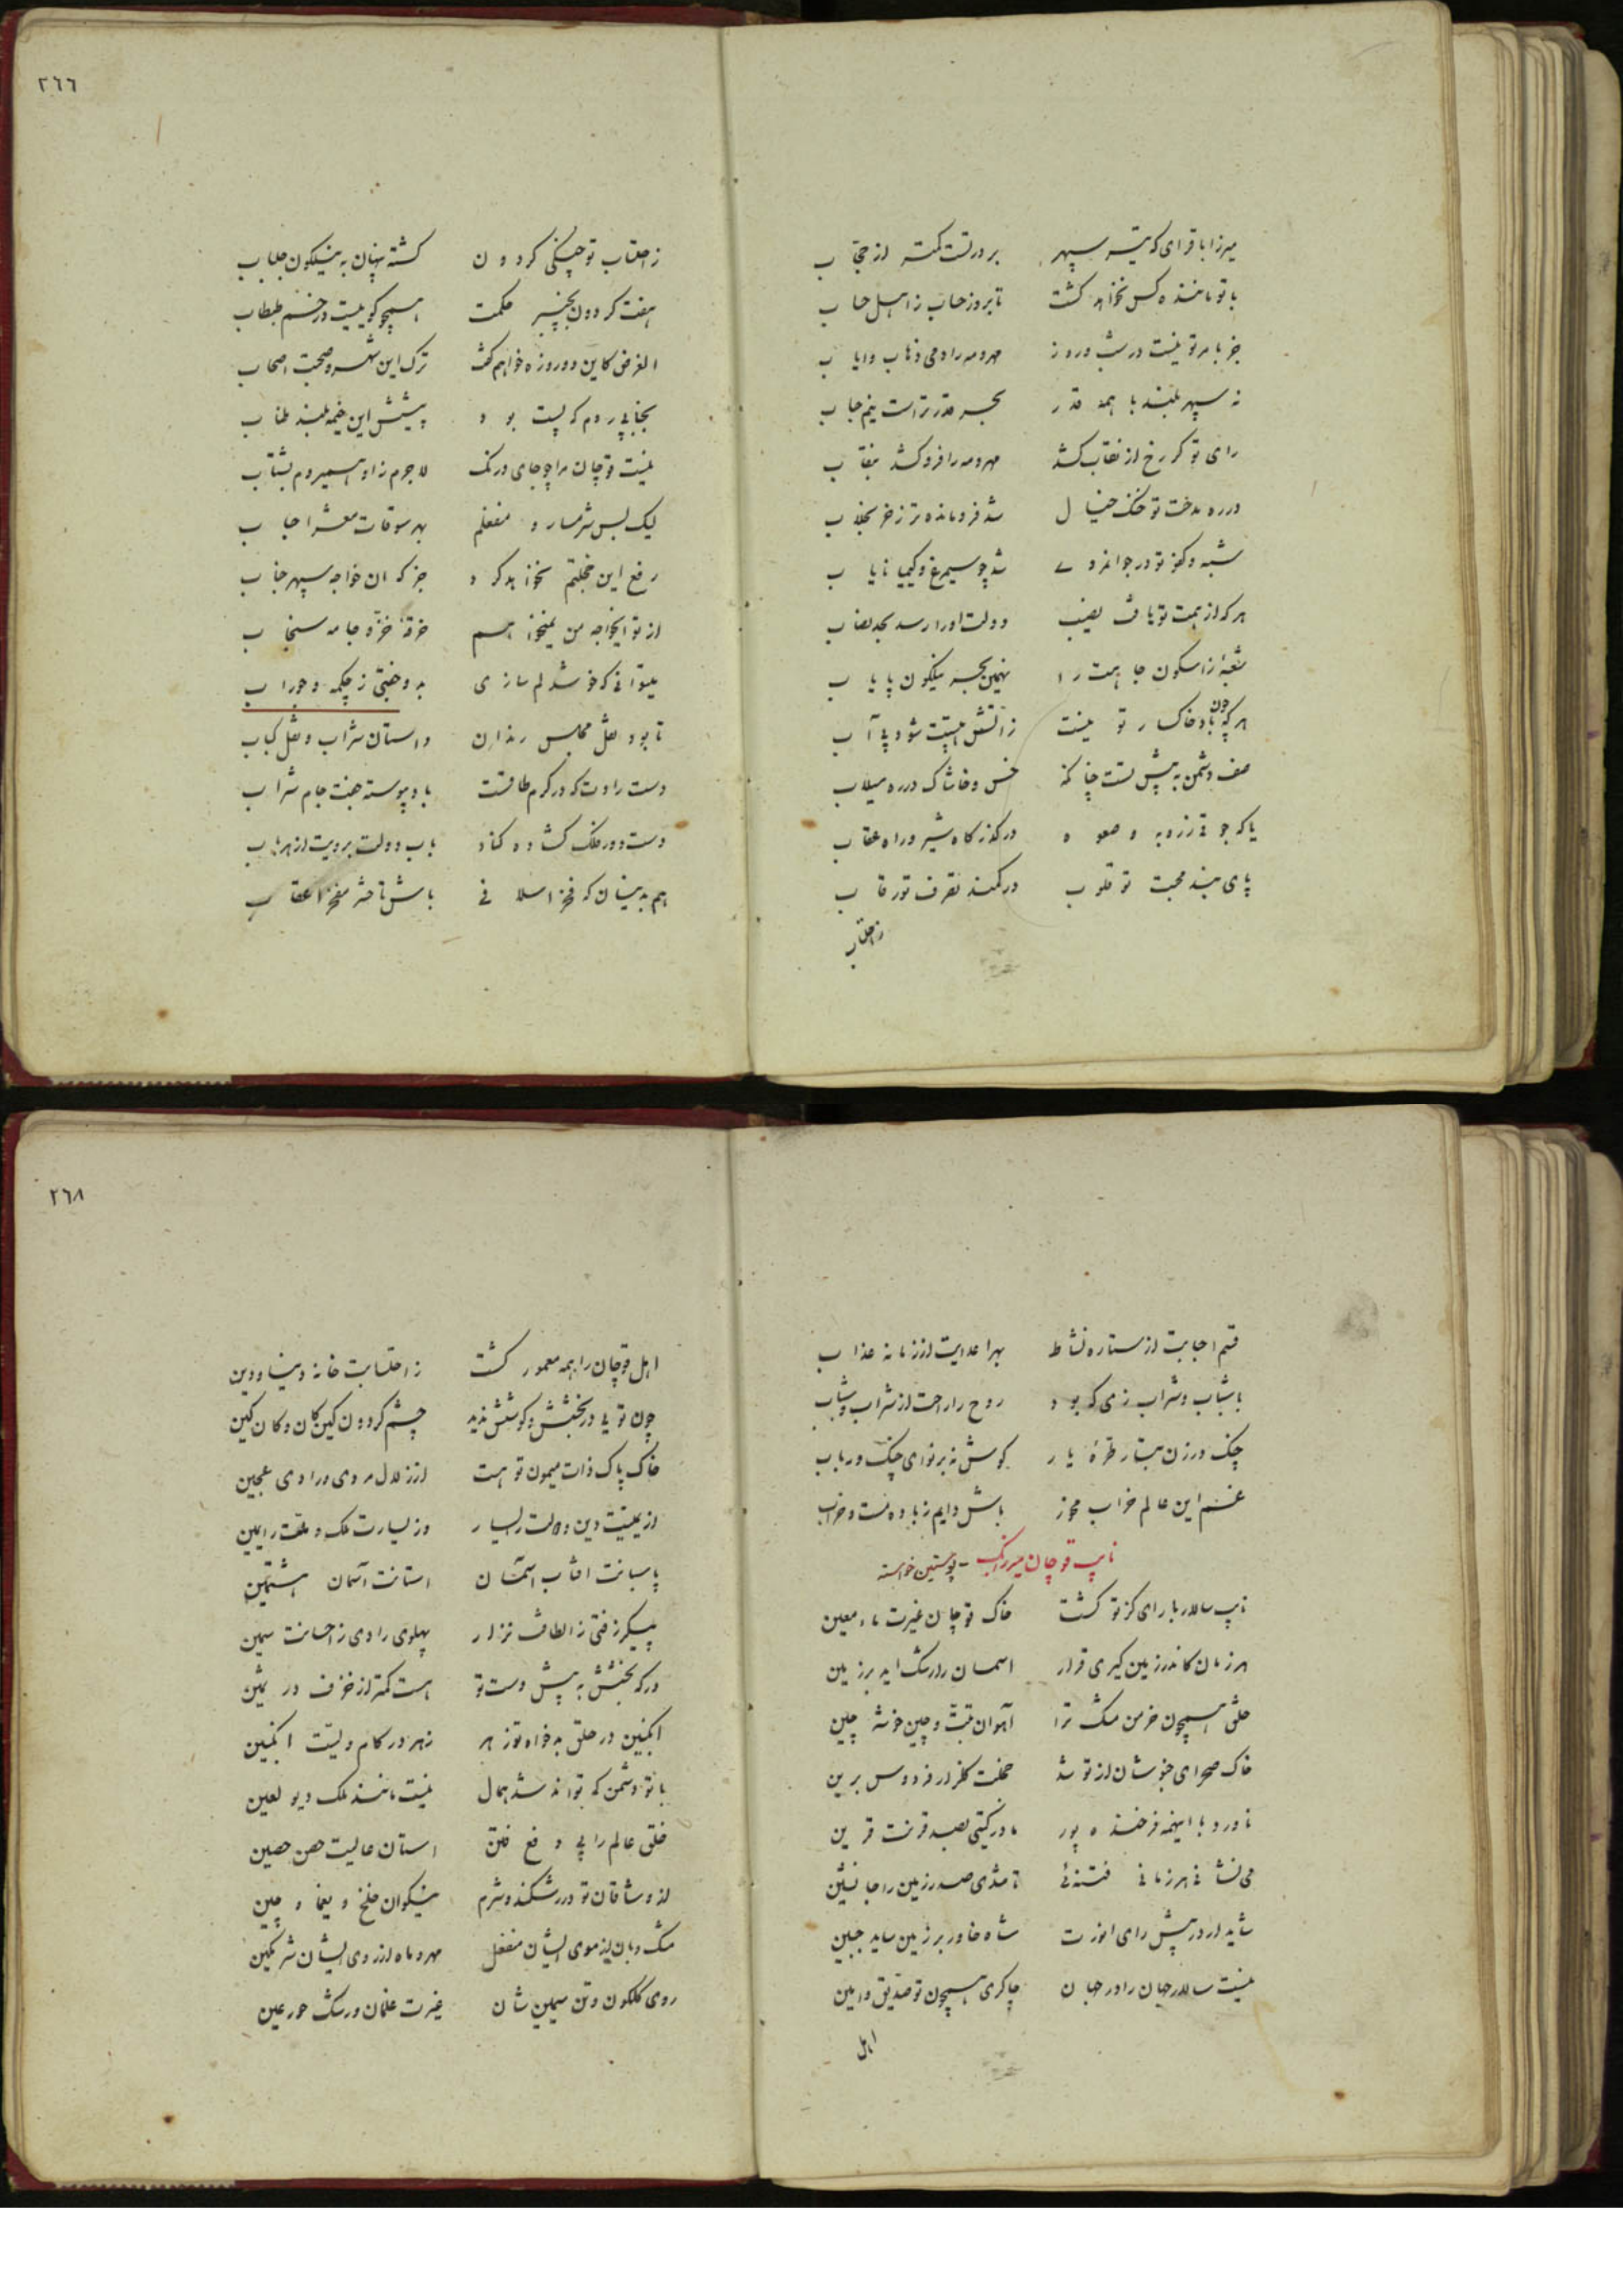 ٢٦٦
میرزا باقر ای که سپهر بر درتست کمتر از حجاب
با تو ماننده کس نخواهد گشت تا بروز حساب ز اهل حساب
جز بامر تو نیست در شب و روز مهر و مه را دمی ذهاب و ایاب
نه سپهر بلند با همه قدر بحر قدر تراست نیم حباب
رای تو گر رخ از نقاب کشد مهر و مه را فرو کشد بنقاب
در ره مدحت تو خنگ خیال شد فرومانده تر ز خر بخلاب
شبه و کفو تو در جوانمردی شد چو سیمرغ و کیمیا نایاب
هر که از همت تو یافت نصیب دولت او را رسد بحد نصاب
شعبهٔ زاسکون جاهت را نهمین بحر نیلگون پایاب
هر که چون باد خاکسار تو نیست ز آتش هیبتت شود بی آب
صف دشمن به پیش تست چنانکه خس و خاشاک در ره سیلاب
یا که جوقی ز روبه و صعوه در گذرگاه شیر و راه عقاب
پای بند محبت تو قلوب در کمند تصرف تو رقاب
ز احتساب
ز احتساب تو چنگی گردون گشته پنهان به نیلگون جلباب
هفت گردون بچنبر حکمت همچو گوییست در خم طبطاب
الغرض کاین دو روزه خواهم گفت ترک این شهر و صحبت اصحاب
بجنابی روم که پست بود پیشش این خیمه بلند طناب
نیست قوچان مرا چو جای درنگ لاجرم زاو همیروم بشتاب
لیک بس شرمسار و منفعلم بهر سوقات معشر احباب
رفع این خجلتم نخواهد کرد جز که آن خواجه سپهر جناب
از تو ایخواجه من نمیخواهم خرقهٔ خز و جامه سنجاب
میتوانی که خوشدلم سازی به دو جفتی ز چکمه و جوراب
تا بود نقل مجلس رندان داستان شراب و نقل کباب
دست رادت که در کرم طاقست باد پیوسته جفت جام شراب
دست دور فلک گشاده کناد باب دولت برویت از هر باب
هم بدینسان که فخر اسلافی باش تا حشر مفخر اعقاب
٢٦٨
قسم احبابت از ستاره نشاط بهر اعدایت از زمانه عذاب
با شباب و شراب زی که بود روح را راحت از شراب و شباب
چنگ در زن بتار طرهٔ یار گوش نه بر نوای چنگ و رباب
غم این عالم خراب مخور باش دایم ز باده مست و خراب
نایب قوچان میرزا ... - پوستین خواسته
نایب سالار بار ای کز تو گشت خاک قوچان غیرت ماء معین
هر زمان کاندر زمین گیری قرار اسمان را رشک اید بر زمین
خلقی همچون خرمن مشک ترا آهوان تبت و چین خوشه چین
خاک صحرای خبوشان از تو شد خجلت گلزار فردوس برین
ناورد با اینهمه فرخنده پور مادر گیتی بصد قرنت قرین
می نشانی هر زمانی فتنهٔ تا شدی صدر زمین را جانشین
شاید ار در پیش رای انورت شاه خاور بر زمین ساید جبین
نیست سالار جهان را در جهان چاکری همچون تو صدیق و امین
اهل
اهل قوچان را همه معمور گشت ز احتسابت خانه دنیا و دین
چون تویی در بخشش و کوشش ندید چشم گردون کین کان و کان کین
خاک پاک ذات میمون تو هست از زلال مردی و رادی عجین
از یمینت دین و دولت را یسار وز یسارت ملک و ملت را یمین
پاسبانت افتاب آسمان استانت آسمان هشتمین
پیکر زفتی ز الطافت نزار پهلوی رادی ز احسانت سمین
در که بخشش به پیش دست تو هست کمتر از خزف در ثمین
انگبین در حلق بدخواه تو زهر زهر در کام ولیت انگبین
با تو دشمن که تواند شد همال نیست مانند ملک دیو لعین
خلق عالم را پی دفع فتن استان عالیت حصن حصین
از وشاقان تو در رشکند و شرم نیکوان خلخ و یغما و چین
مشک و بان از موی ایشان منفعل مهر و ماه از روی ایشان شرمگین
روی گلگون و تن سیمین شان غیرت غلمان و رشک حور عین